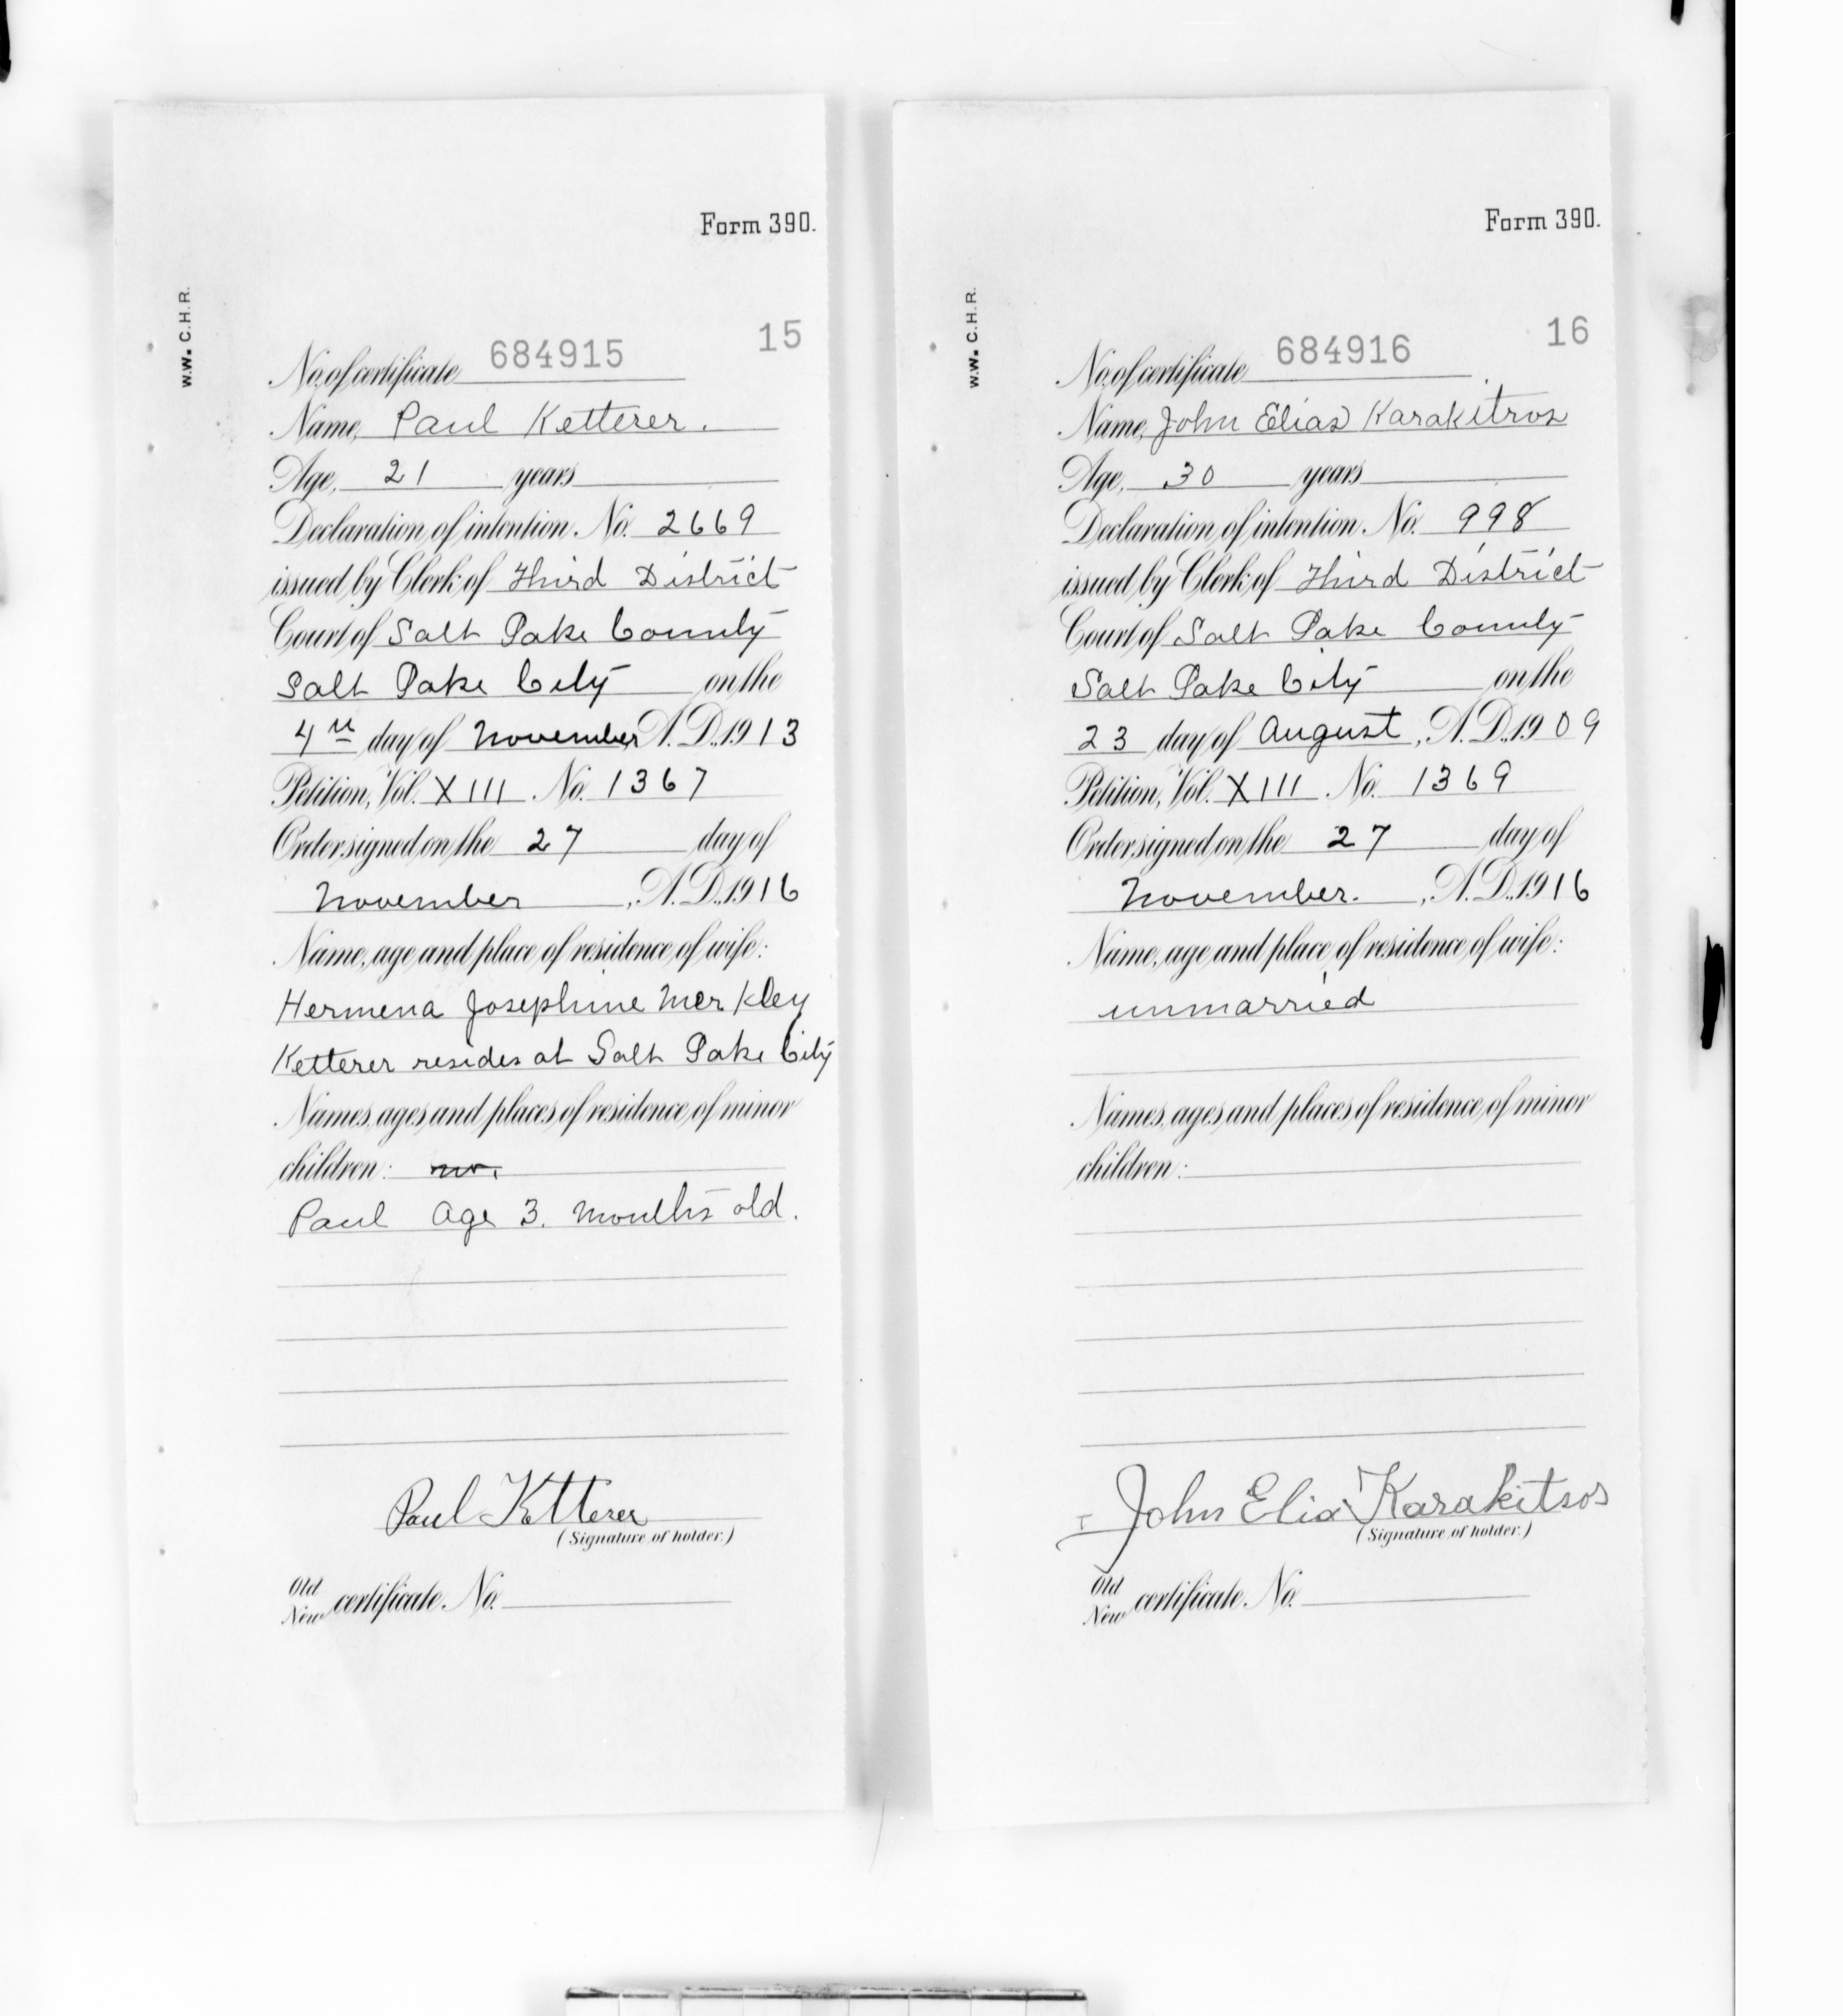 Form 390.
W.W. C.H.R.
15
No. of certificate 684915
Name, Paul Ketterer.
Age, 21 years
Declaration of intention, No. 2669
issued by Clerk of Third District
Court of Salt Lake County
Salt Lake City on the
4th day of November, A. D., 1913
Petition, Vol. XIII. No. 1367
Order signed on the 27 day of
November, A. D., 1916
Name, age and place of residence of wife:
Hermena Josephine Merkley
Ketterer resides at Salt Lake City
Names, ages and places of residence of minor
children: no.
Paul Age 3. months old.
Paul Ketterer
(Signature of holder.)
Old
New certificate, No.
Form 390.
W.W. C.H.R.
16
No. of certificate 684916
Name, John Elias Karakitsos
Age, 30 years
Declaration of intention, No. 998
issued by Clerk of Third District
Court of Salt Lake County
Salt Lake City on the
23 day of August, A. D., 1909
Petition, Vol. XIII. No. 1369
Order signed on the 27 day of
November., A. D., 1916
Name, age and place of residence of wife:
unmarried
Names, ages and places of residence of minor
children:
John Elia Karakitsos
(Signature of holder.)
Old
New certificate, No.